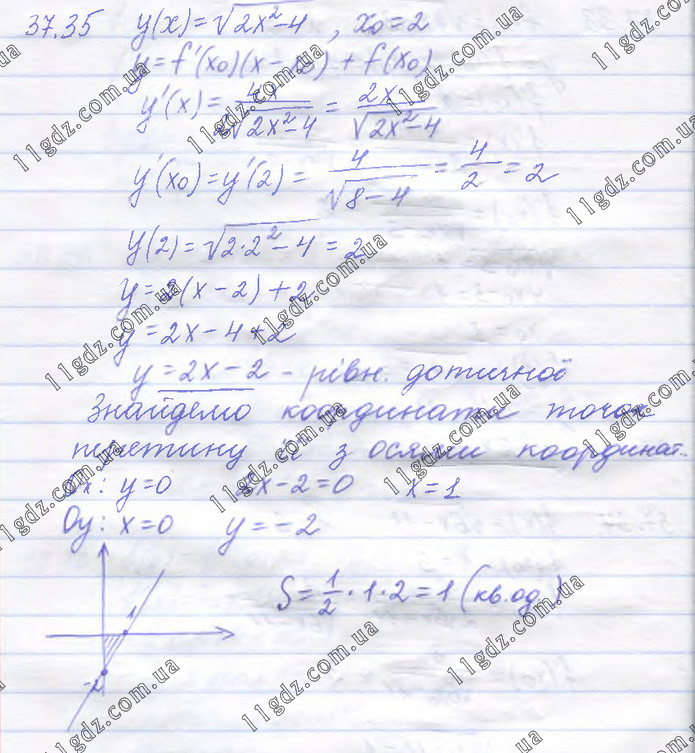 37.35 y(x)=√(2x²-4), x₀=2
y=f'(x₀)(x-x₀)+f(x₀)
y'(x)=4x/(2√(2x²-4))=2x/√(2x²-4)
y'(x₀)=y'(2)=4/√(8-4)=4/2=2
y(2)=√(2·2²-4)=2
y=2(x-2)+2
y=2x-4+2
y=2x-2 - рівн. дотичної
Знайдемо координати точок
перетину її з осями координат.
Ox: y=0 2x-2=0 x=1
Oy: x=0 y=-2
S=1/2·1·2=1 (кв.од.)
1
-2
11gdz.com.ua